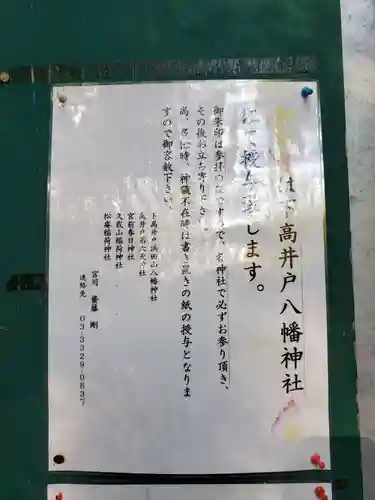 は下高井戸八幡神社
にて授与致します。
御朱印は参拝の証ですので、各神社で必ずお参り頂き、
その後お立ち寄り下さい。
尚、多忙時、神職不在時は書き置きの紙の授与となりま
すので御容赦下さい。
下高井戸浜田山八幡神社
高井戸第六天神社
宮前春日神社
久我山稲荷神社
松庵稲荷神社
宮司 齋藤 剛
連絡先 03-3329-0837